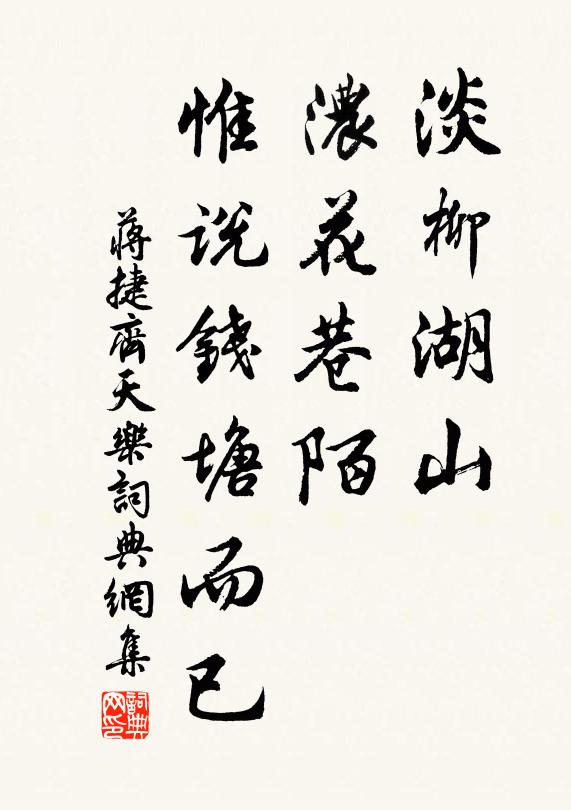 淡柳湖山
濃花巷陌
惟説錢塘而已
蔣捷齊天樂詞典網集
詞典网印